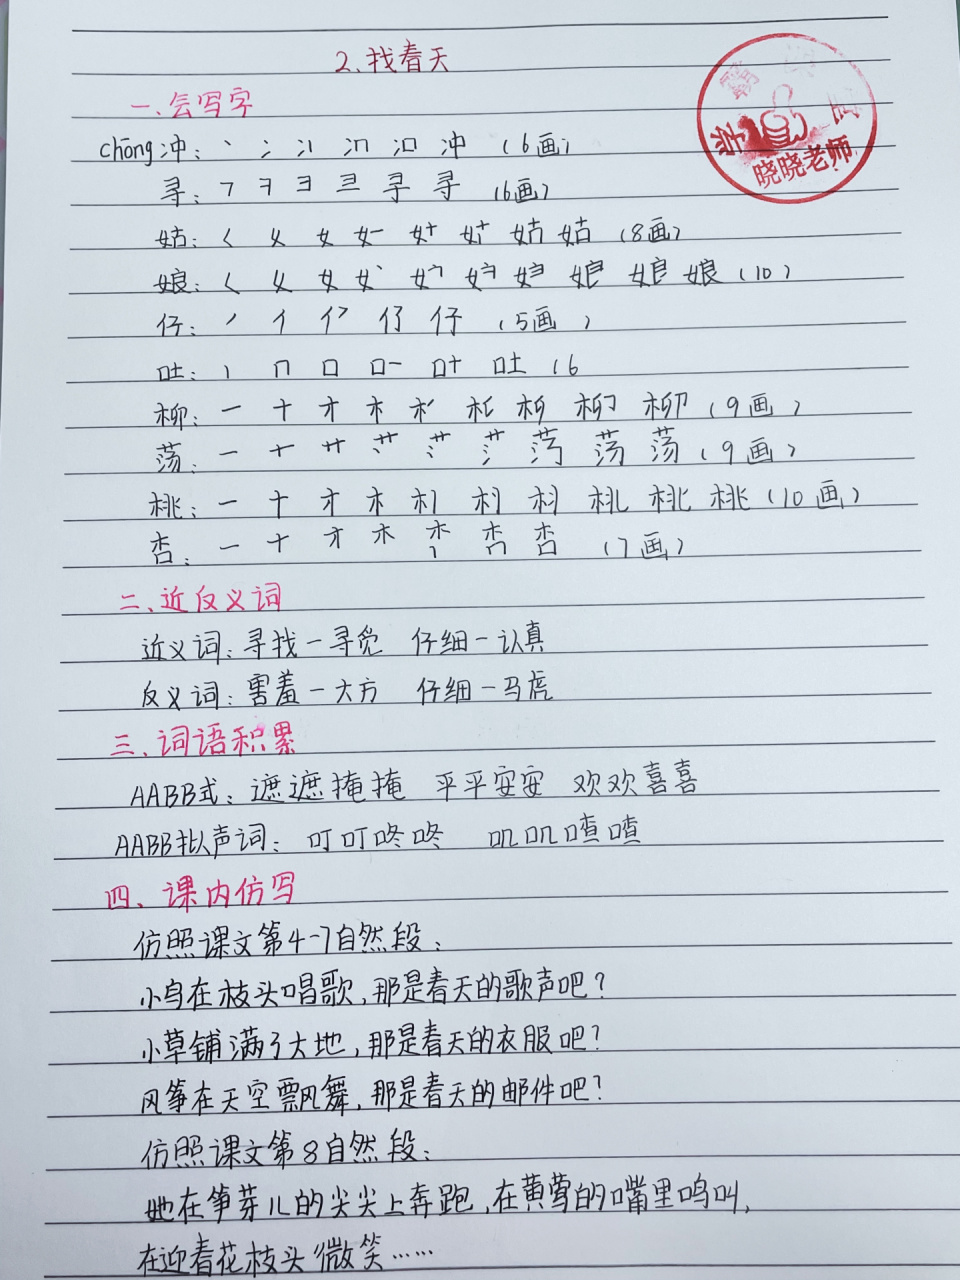 2、找春天
一、会写字
chōng冲：丶 冫 冫丨 冫冂 冫口 冲 (6画)
寻：𠃍 ヨ 彐 寻 寻 (6画)
姑：𡿨 女 女 姑 姑 (8画)
娘：𡿨 女 女 娘 娘 (10)
仔：丿 亻 仔 (5画)
吐：丨 冂 口 口一 口十 吐 (6
柳：一 十 才 木 柳 (9画)
荡：一 十 艹 荡 荡 (9画)
桃：一 十 才 木 桃 (10画)
杏：一 十 才 木 杏 杏 (7画)
二、近反义词
近义词：寻找—寻觅 仔细—认真
反义词：害羞—大方 仔细—马虎
三、词语积累
AABB式：遮遮掩掩 平平安安 欢欢喜喜
AABB拟声词：叮叮咚咚 叽叽喳喳
四、课内仿写
仿照课文第4-7自然段：
小鸟在枝头唱歌，那是春天的歌声吧？
小草铺满了大地，那是春天的衣服吧？
风筝在天空飘舞，那是春天的邮件吧？
仿照课文第8自然段：
她在笋芽儿的尖尖上奔跑，在黄莺的嘴里鸣叫，
在迎春花枝头微笑……
晓晓老师